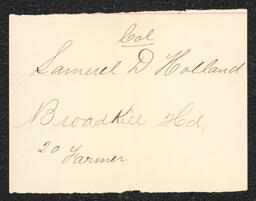 Col
Samuel D Holland
Broadkill Hd.
20 Farmer